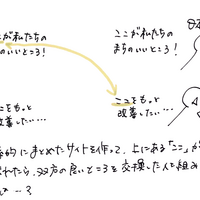 ここが私たちの
のいいところ!
ここが私たちの
まちのいいところ!
こをもっと
改善したい…
ここをもっと
改善したい…
的にまとめたサイトを作って、上にある「ここ」が
れたら、双方の良いところを交換した人と組み
…?